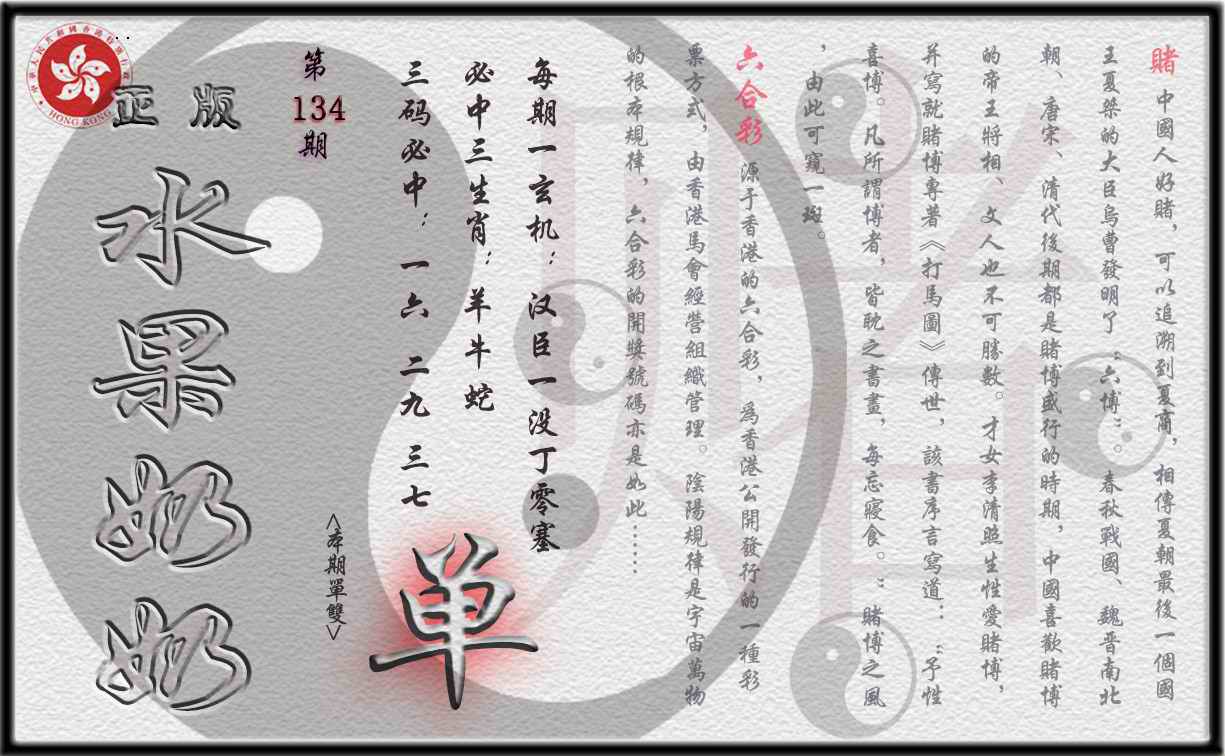 賭 中國人好賭，可以追溯到夏商，相傳夏朝最後一個國
王夏桀的大臣烏曹發明了“六博”。春秋戰國、魏晉南北
朝、唐宋、清代後期都是賭博盛行的時期，中國喜歡賭博
的帝王將相、文人也不可勝數。才女李清照生性愛賭博，
并寫就賭博專著《打馬圖》傳世，該書序言寫道：“予性
喜博。凡所謂博者，皆耽之書畫，每忘寢食。”賭博之風
，由此可窺一斑。
六合彩 源于香港的六合彩，為香港公開發行的一種彩
票方式，由香港馬會經營組織管理。陰陽規律是宇宙萬物
的根本規律，六合彩的開獎號碼亦是如此……
每期一玄机：汉臣一没丁零塞
必中三生肖：羊牛蛇
三码必中：一六 二九 三七
单
<本期單雙>
第
134
期
正版
水果奶奶
HONG KONG